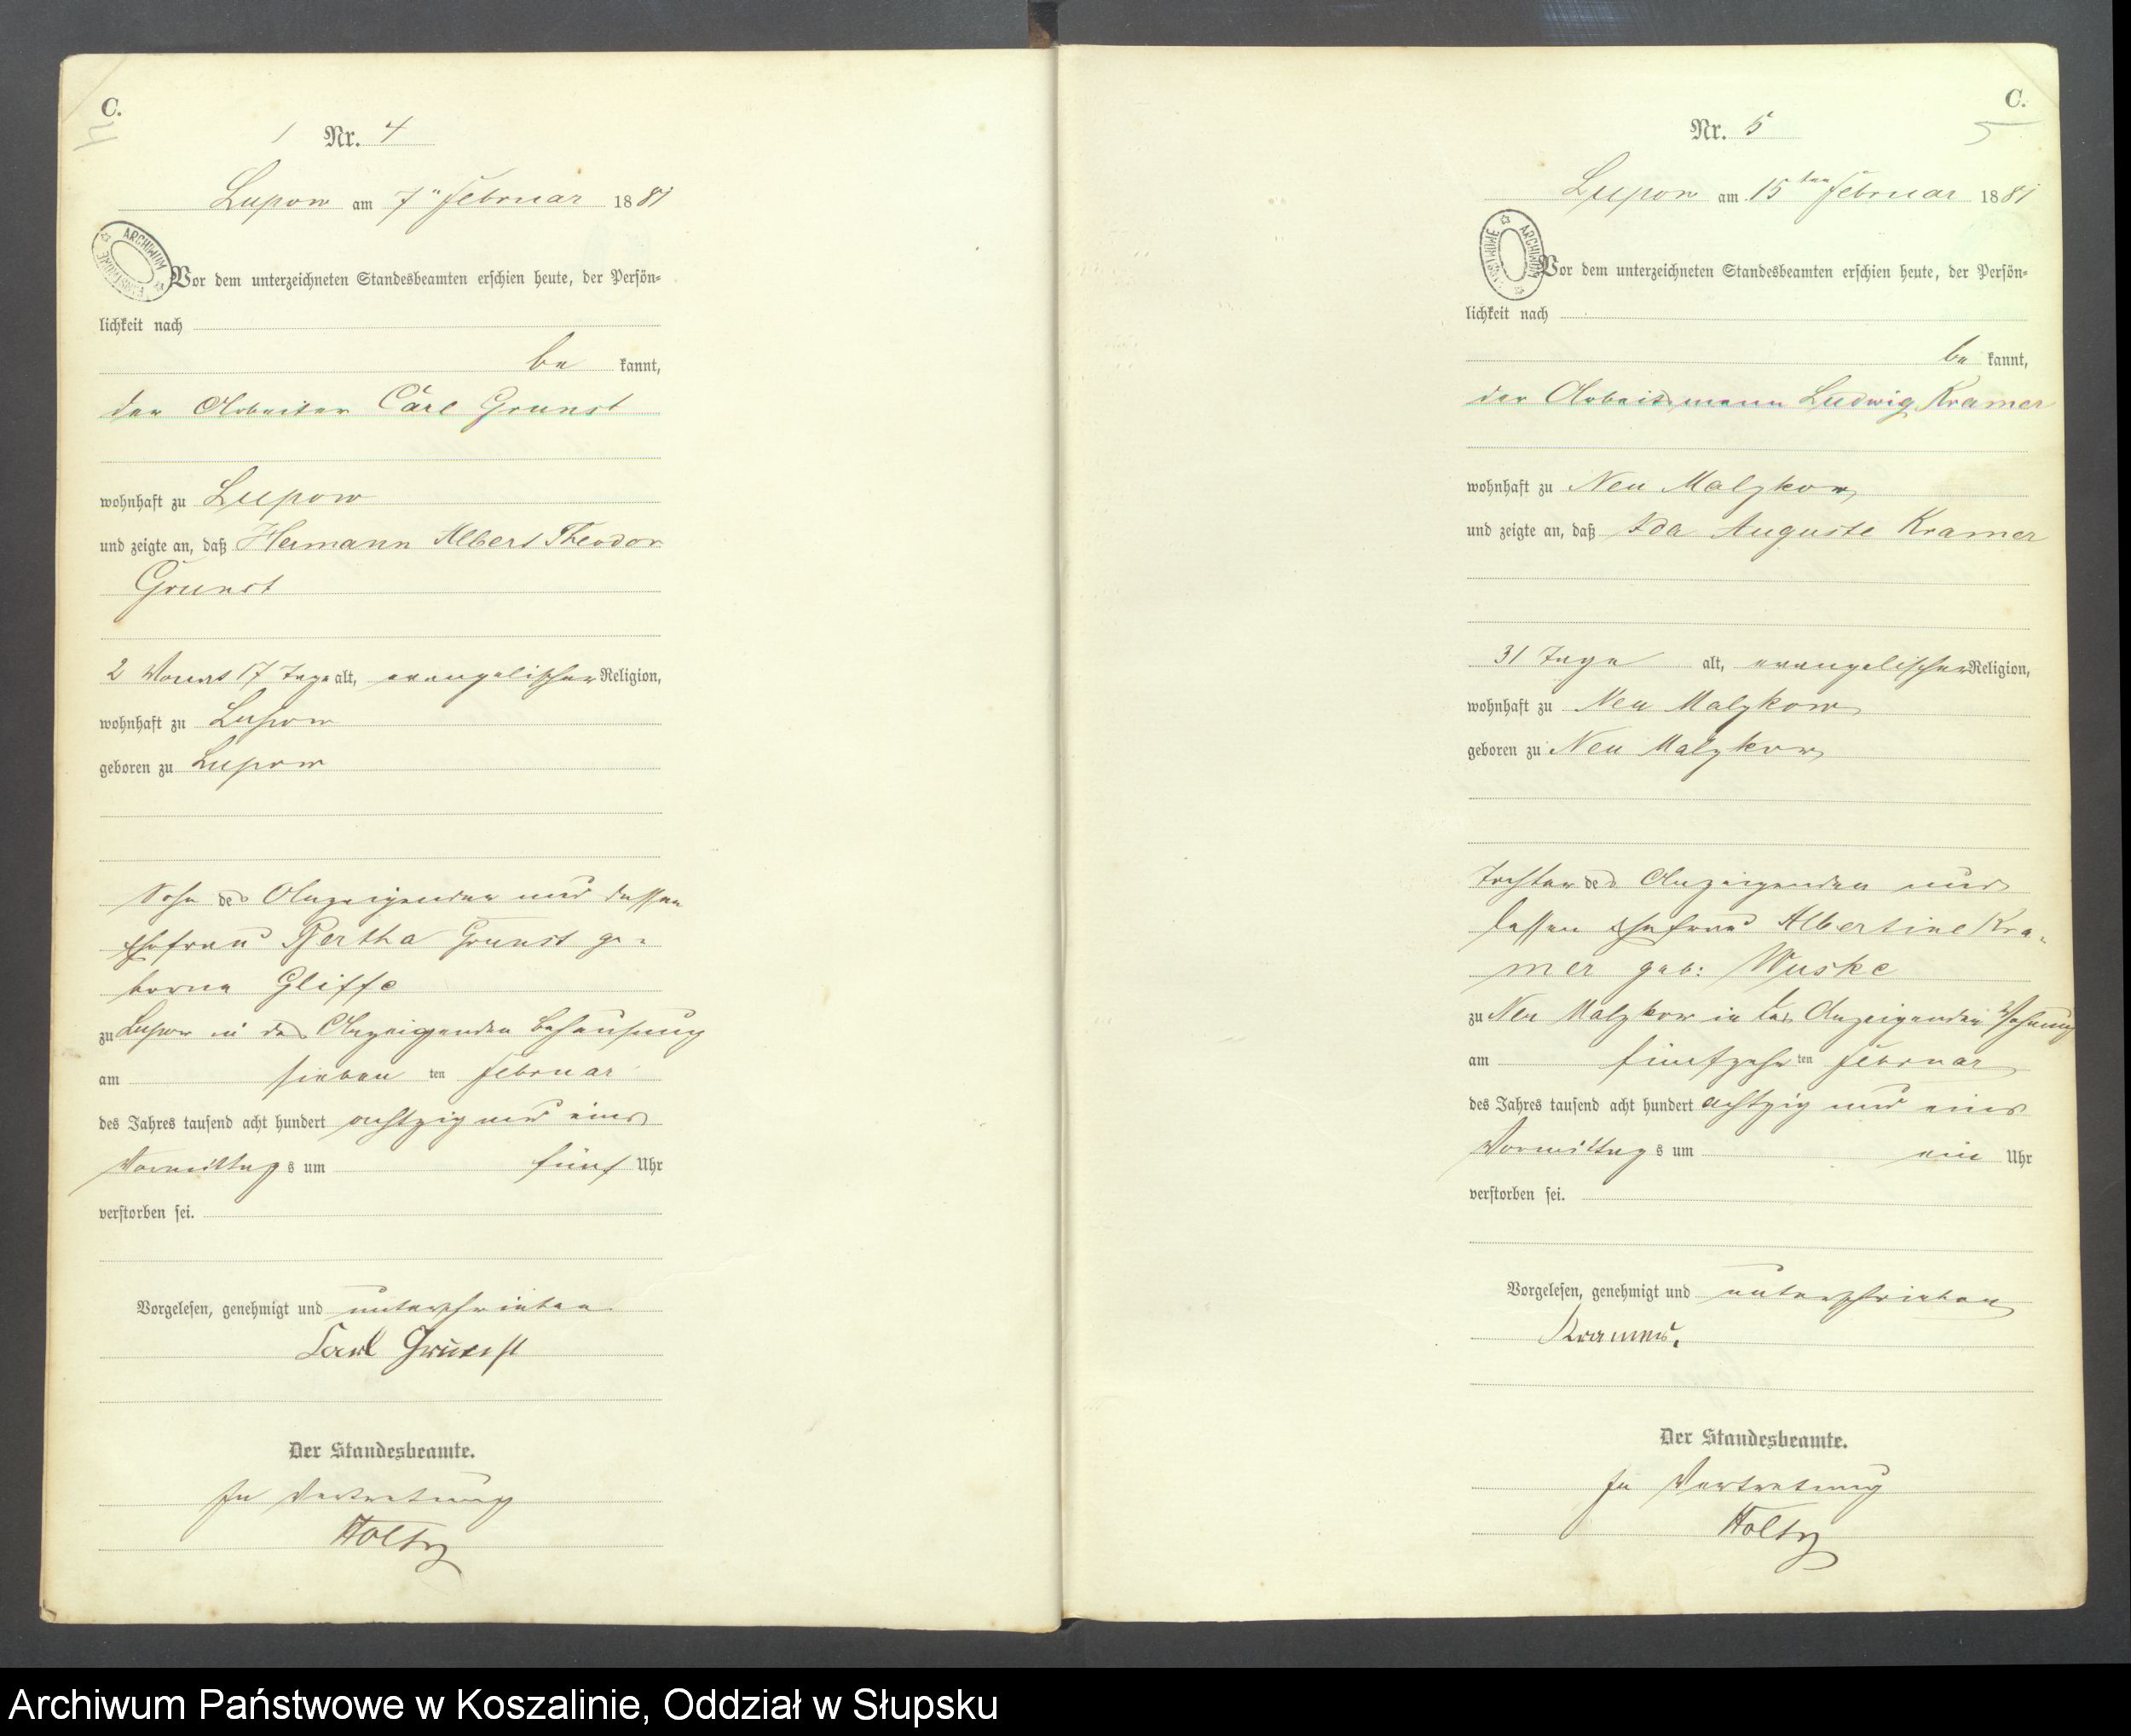 C.
4
Nr. 4
Lupow am 7" Februar 1881
ARCHIWUM PAŃSTWOWE
Vor dem unterzeichneten Standesbeamten erschien heute, der Persön-
lichkeit nach
be kannt,
der Arbeiter Carl Grunst
wohnhaft zu Lupow
und zeigte an, daß Hermann Albert Theodor
Grunst
2 Monat 17 Tage alt, evangelischer Religion,
wohnhaft zu Lupow
geboren zu Lupow
Sohn des Anzeigenden und dessen
Ehefrau Bertha Grunst ge-
borne Gliffe
zu Lupow in des Anzeigenden Behausung
am sieben ten Februar
des Jahres tausend acht hundert achtzig und eins
Vormittags um fünf Uhr
verstorben sei.
Vorgelesen, genehmigt und unterschrieben
Carl Grunst
Der Standesbeamte.
In Vertretung
Holtz
C.
5
Nr. 5
Lupow am 15ten Februar 1881
ARCHIWUM PAŃSTWOWE
Vor dem unterzeichneten Standesbeamten erschien heute, der Persön-
lichkeit nach
be kannt,
der Arbeitsmann Ludwig Kramer
wohnhaft zu Neu Malzkow
und zeigte an, daß Ida Auguste Kramer
31 Tage alt, evangelischer Religion,
wohnhaft zu Neu Malzkow
geboren zu Neu Malzkow
Tochter des Anzeigenden und
dessen Ehefrau Albertine Kra-
mer geb: Wuske
zu Neu Malzkow in des Anzeigenden Wohnung
am fünfzehn ten Februar
des Jahres tausend acht hundert achtzig und eins
Vormittags um ein Uhr
verstorben sei.
Vorgelesen, genehmigt und unterschrieben
Kramer.
Der Standesbeamte.
In Vertretung
Holtz
Archiwum Państwowe w Koszalinie, Oddział w Słupsku